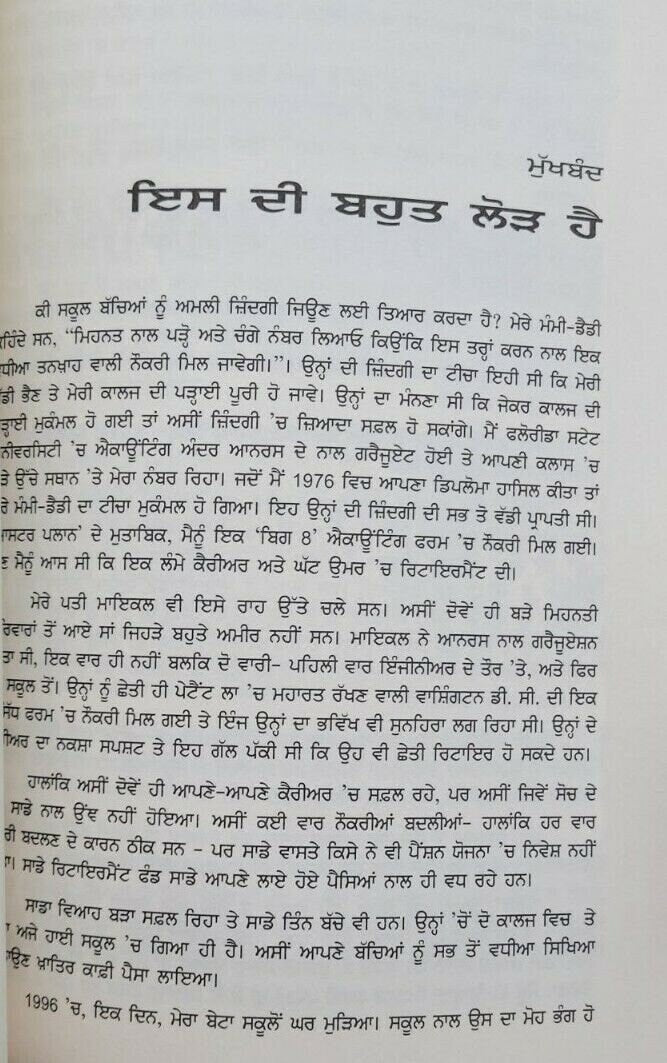 ਮੁੱਖਬੰਦ
ਇਸ ਦੀ ਬਹੁਤ ਲੋੜ ਹੈ
ਕੀ ਸਕੂਲ ਬੱਚਿਆਂ ਨੂੰ ਅਮਲੀ ਜ਼ਿੰਦਗੀ ਜਿਊਣ ਲਈ ਤਿਆਰ ਕਰਦਾ ਹੈ? ਮੇਰੇ ਮੰਮੀ-ਡੈਡੀ
ਹਿੰਦੇ ਸਨ, “ਮਿਹਨਤ ਨਾਲ ਪੜ੍ਹੋ ਅਤੇ ਚੰਗੇ ਨੰਬਰ ਲਿਆਓ ਕਿਉਂਕਿ ਇਸ ਤਰ੍ਹਾਂ ਕਰਨ ਨਾਲ ਇਕ
ਧੀਆ ਤਨਖਾਹ ਵਾਲੀ ਨੌਕਰੀ ਮਿਲ ਜਾਵੇਗੀ।”। ਉਨ੍ਹਾਂ ਦੀ ਜ਼ਿੰਦਗੀ ਦਾ ਟੀਚਾ ਇਹੀ ਸੀ ਕਿ ਮੇਰੀ
ੱਡੀ ਭੈਣ ਤੇ ਮੇਰੀ ਕਾਲਜ ਦੀ ਪੜ੍ਹਾਈ ਪੂਰੀ ਹੋ ਜਾਵੇ। ਉਨ੍ਹਾਂ ਦਾ ਮੰਨਣਾ ਸੀ ਕਿ ਜੇਕਰ ਕਾਲਜ ਦੀ
ੜ੍ਹਾਈ ਮੁਕੰਮਲ ਹੋ ਗਈ ਤਾਂ ਅਸੀਂ ਜ਼ਿੰਦਗੀ ’ਚ ਜ਼ਿਆਦਾ ਸਫ਼ਲ ਹੋ ਸਕਾਂਗੇ। ਮੈਂ ਫਲੋਰੀਡਾ ਸਟੇਟ
ਨੀਵਰਸਿਟੀ ’ਚ ਐਕਾਊਂਟਿੰਗ ਅੰਦਰ ਆਨਰਸ ਦੇ ਨਾਲ ਗਰੈਜੂਏਟ ਹੋਈ ਤੇ ਆਪਣੀ ਕਲਾਸ ’ਚ
ਤੇ ਉੱਚੇ ਸਥਾਨ ’ਤੇ ਮੇਰਾ ਨੰਬਰ ਰਿਹਾ। ਜਦੋਂ ਮੈਂ 1976 ਵਿਚ ਆਪਣਾ ਡਿਪਲੋਮਾ ਹਾਸਿਲ ਕੀਤਾ ਤਾਂ
ਰੇ ਮੰਮੀ-ਡੈਡੀ ਦਾ ਟੀਚਾ ਮੁਕੰਮਲ ਹੋ ਗਿਆ। ਇਹ ਉਨ੍ਹਾਂ ਦੀ ਜ਼ਿੰਦਗੀ ਦੀ ਸਭ ਤੋ ਵੱਡੀ ਪ੍ਰਾਪਤੀ ਸੀ।
ਾਸਟਰ ਪਲਾਨ’ ਦੇ ਮੁਤਾਬਿਕ, ਮੈਨੂੰ ਇਕ ‘ਬਿਗ 8’ ਐਕਾਊਂਟਿੰਗ ਫਰਮ ’ਚ ਨੌਕਰੀ ਮਿਲ ਗਈ।
ਣ ਮੈਨੂੰ ਆਸ ਸੀ ਕਿ ਇਕ ਲੰਮੇ ਕੈਰੀਅਰ ਅਤੇ ਘੱਟ ਉਮਰ ’ਚ ਰਿਟਾਇਰਮੈਂਟ ਦੀ।
ਮੇਰੇ ਪਤੀ ਮਾਇਕਲ ਵੀ ਇਸੇ ਰਾਹ ਉੱਤੇ ਚਲੇ ਸਨ। ਅਸੀਂ ਦੋਵੇਂ ਹੀ ਬੜੇ ਮਿਹਨਤੀ
ਰਵਾਰਾਂ ਤੋਂ ਆਏ ਸਾਂ ਜਿਹੜੇ ਬਹੁਤੇ ਅਮੀਰ ਨਹੀਂ ਸਨ। ਮਾਇਕਲ ਨੇ ਆਨਰਸ ਨਾਲ ਗਰੈਜੂਏਸ਼ਨ
ਤਾ ਸੀ, ਇਕ ਵਾਰ ਹੀ ਨਹੀਂ ਬਲਕਿ ਦੋ ਵਾਰੀ- ਪਹਿਲੀ ਵਾਰ ਇੰਜੀਨੀਅਰ ਦੇ ਤੌਰ ’ਤੇ, ਅਤੇ ਫਿਰ
ਸਕੂਲ ਤੋਂ। ਉਨ੍ਹਾਂ ਨੂੰ ਛੇਤੀ ਹੀ ਪੇਟੈਂਟ ਲਾ ’ਚ ਮਹਾਰਤ ਰੱਖਣ ਵਾਲੀ ਵਾਸ਼ਿੰਗਟਨ ਡੀ. ਸੀ. ਦੀ ਇਕ
ੱਧ ਫਰਮ ’ਚ ਨੌਕਰੀ ਮਿਲ ਗਈ ਤੇ ਇੰਜ ਉਨ੍ਹਾਂ ਦਾ ਭਵਿੱਖ ਵੀ ਸੁਨਹਿਰਾ ਲਗ ਰਿਹਾ ਸੀ। ਉਨ੍ਹਾਂ ਦੇ
ੀਅਰ ਦਾ ਨਕਸ਼ਾ ਸਪਸ਼ਟ ਤੇ ਇਹ ਗੱਲ ਪੱਕੀ ਸੀ ਕਿ ਉਹ ਵੀ ਛੇਤੀ ਰਿਟਾਇਰ ਹੋ ਸਕਦੇ ਹਨ।
ਹਾਲਾਂਕਿ ਅਸੀਂ ਦੋਵੇਂ ਹੀ ਆਪਣੇ-ਆਪਣੇ ਕੈਰੀਅਰ ’ਚ ਸਫ਼ਲ ਰਹੇ, ਪਰ ਅਸੀਂ ਜਿਵੇਂ ਸੋਚ ਦੇ
ਸਾਡੇ ਨਾਲ ਉਂਵ ਨਹੀਂ ਹੋਇਆ। ਅਸੀਂ ਕਈ ਵਾਰ ਨੌਕਰੀਆਂ ਬਦਲੀਆਂ- ਹਾਲਾਂਕਿ ਹਰ ਵਾਰ
ਰੀ ਬਦਲਣ ਦੇ ਕਾਰਨ ਠੀਕ ਸਨ - ਪਰ ਸਾਡੇ ਵਾਸਤੇ ਕਿਸੇ ਨੇ ਵੀ ਪੈਂਸ਼ਨ ਯੋਜਨਾ ’ਚ ਨਿਵੇਸ਼ ਨਹੀਂ
ਾ। ਸਾਡੇ ਰਿਟਾਇਰਮੈਂਟ ਫੰਡ ਸਾਡੇ ਆਪਣੇ ਲਾਏ ਹੋਏ ਪੈਸਿਆਂ ਨਾਲ ਹੀ ਵਧ ਰਹੇ ਹਨ।
ਸਾਡਾ ਵਿਆਹ ਬੜਾ ਸਫ਼ਲ ਰਿਹਾ ਤੇ ਸਾਡੇ ਤਿੰਨ ਬੱਚੇ ਵੀ ਹਨ। ਉਨ੍ਹਾਂ ’ਚੋਂ ਦੋ ਕਾਲਜ ਵਿਚ ਤੇ
ਅਜੇ ਹਾਈ ਸਕੂਲ ’ਚ ਗਿਆ ਹੀ ਹੈ। ਅਸੀਂ ਆਪਣੇ ਬੱਚਿਆਂ ਨੂੰ ਸਭ ਤੋਂ ਵਧੀਆ ਸਿਖਿਆ
ਾਉਣ ਖ਼ਾਤਿਰ ਕਾਫ਼ੀ ਪੈਸਾ ਲਾਇਆ।
1996 ’ਚ, ਇਕ ਦਿਨ, ਮੇਰਾ ਬੇਟਾ ਸਕੂਲੋਂ ਘਰ ਮੁੜਿਆ। ਸਕੂਲ ਨਾਲ ਉਸ ਦਾ ਮੋਹ ਭੰਗ ਹੋ